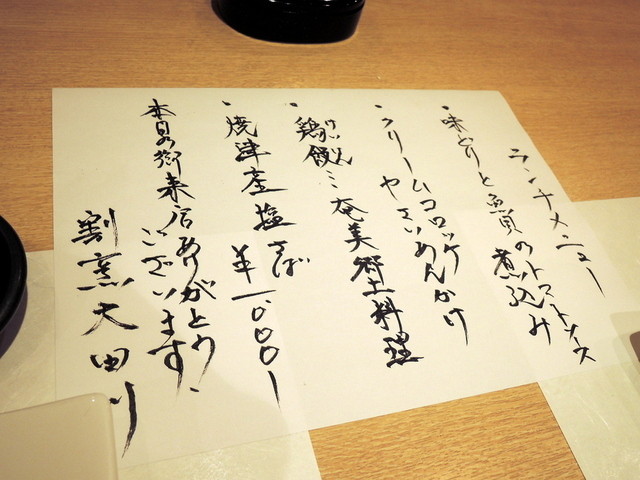 ランチメニュー
・味どりと魚貝のトマトソース
煮込み
・クリームコロッケ
やさいあんかけ
・鶏飯…奄美郷土料理
けいはん
・焼津産塩さば
￥1,000ー
本日の御来店ありがとう
ございます
割烹大田川